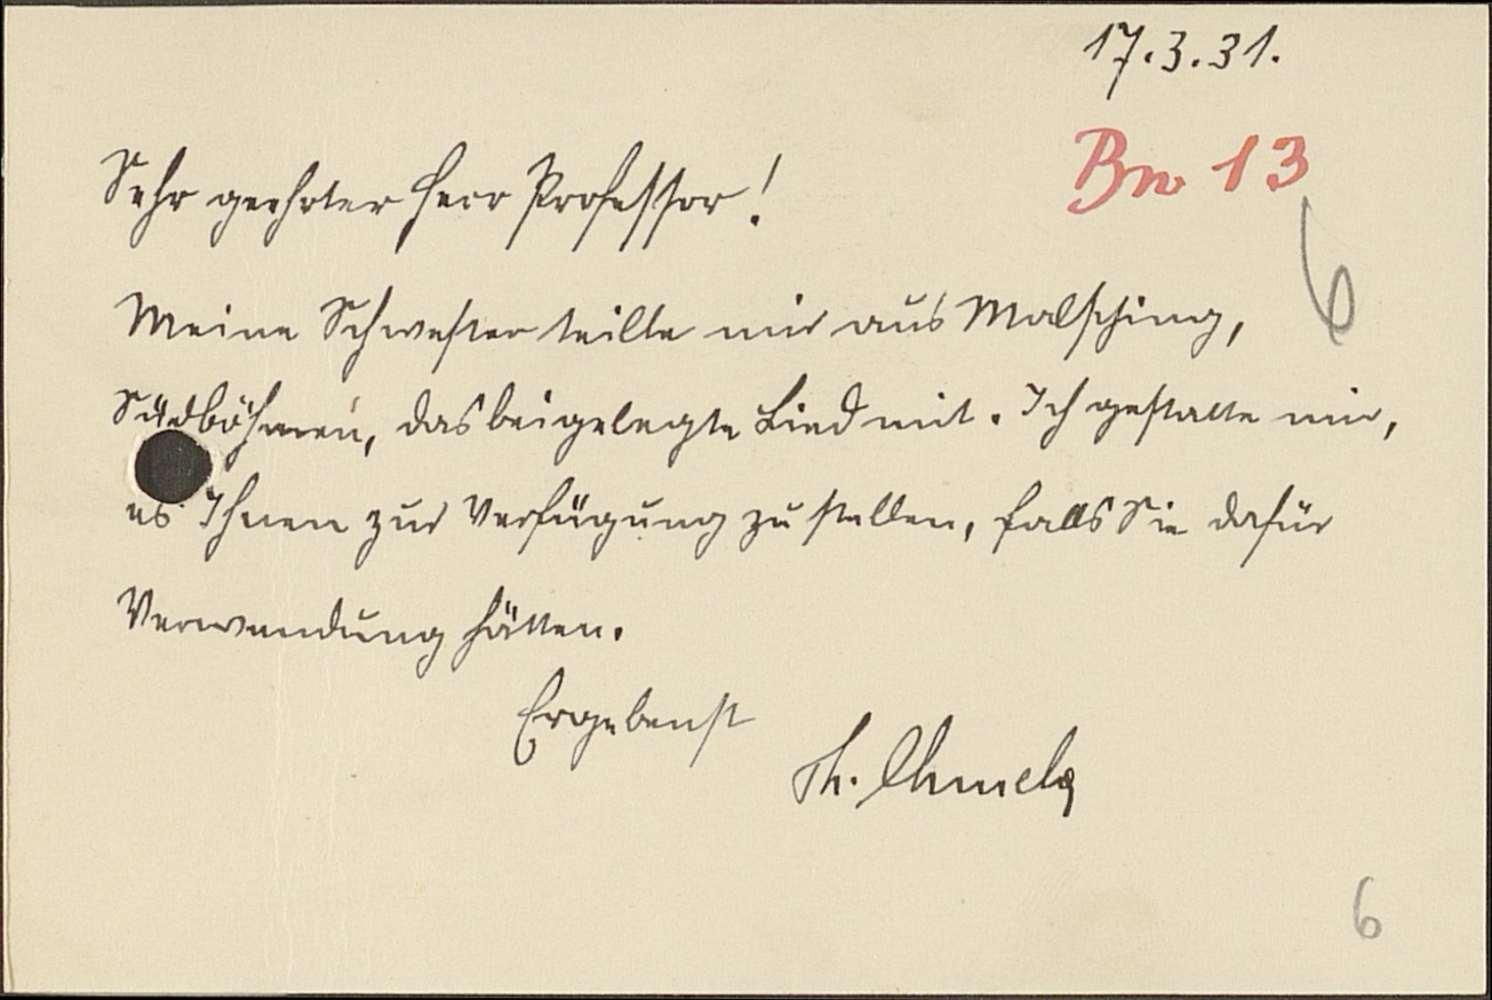 17.3.31.
Bw 13
Sehr geehrter Herr Professor!
6
Meine Schwester teilte mir aus Malsching,
Südböhmen, das beigelegte Lied mit. Ich gestatte mir,
es Ihnen zur Verfügung zu stellen, falls Sie dafür
Verwendung hätten.
Ergebenst
Th. Chmela
6